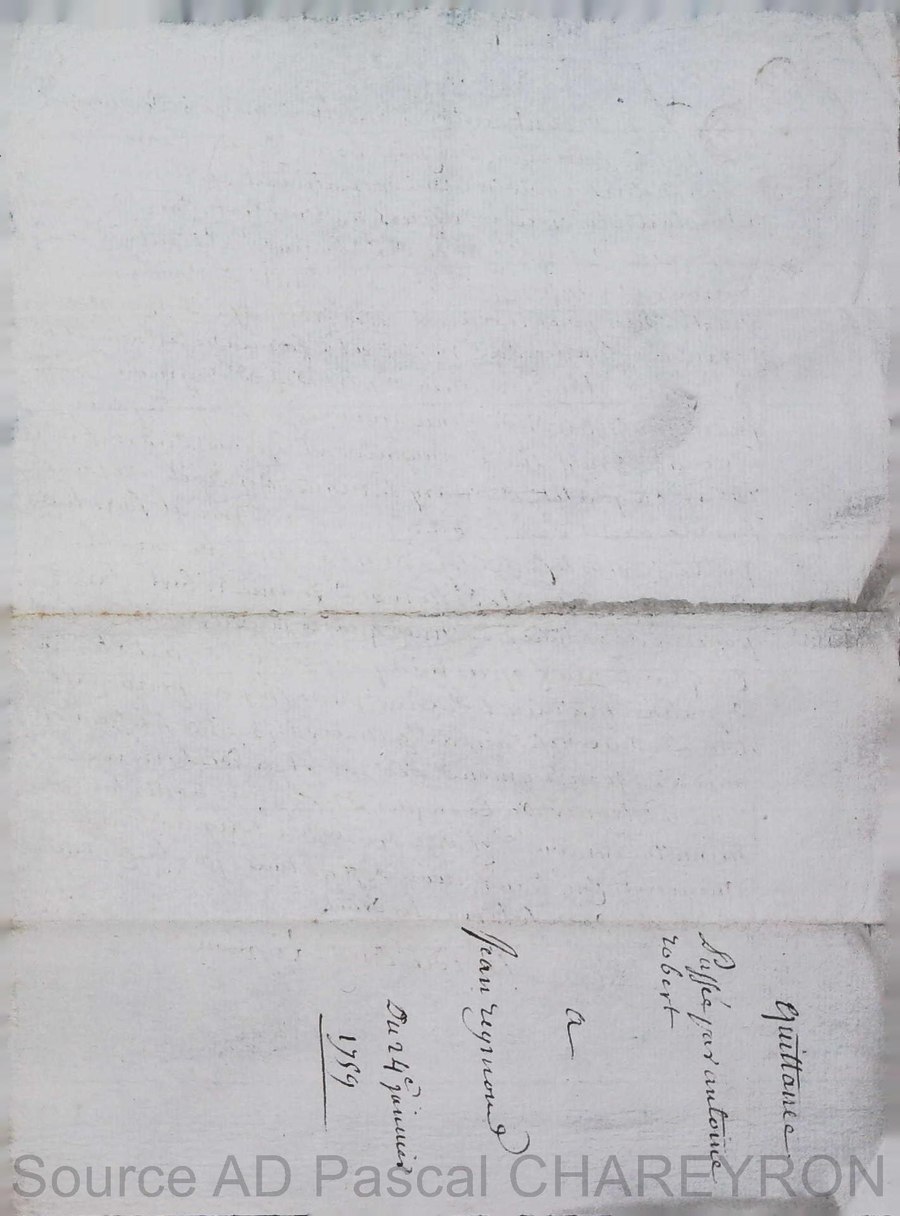 quittance
Passée par antoine
robert
a
Jean reymond
Du 24e janvier
1759
Source AD Pascal CHAREYRON